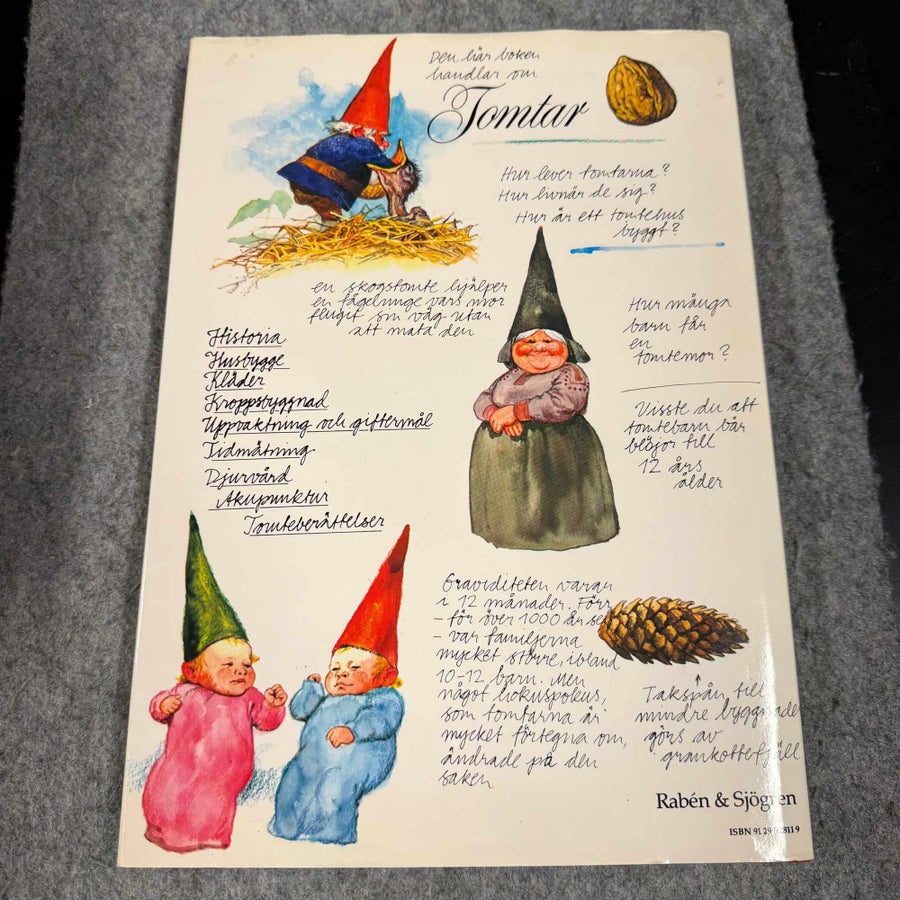 Den här boken
handlar om
Tomtar
Hur lever tomtarna?
Hur livnär de sig?
Hur är ett tomtehus
byggt?
en skogstomte hjälper
en fågelunge vars mor
flugit sin väg utan
att mata den
Historia
Husbygge
Kläder
Kroppsbyggnad
Uppvaktning och giftermål
Tidmätning
Djurvård
Akupunktur
Tomteberättelser
Hur många
barn får
en
tomtemor?
Visste du att
tomtebarn bär
blöjor till
12 års
ålder
Graviditeten varar
i 12 månader. Förr
- för över 1000 år se
- var familjerna
mycket större, ibland
10-12 barn. Men
något hokuspokus,
som tomtarna är
mycket förtegna om,
ändrade på den
saken
Takspån till
mindre byggnade
görs av
grankottefjäll
Rabén & Sjögren
ISBN 91 29 5 811 9